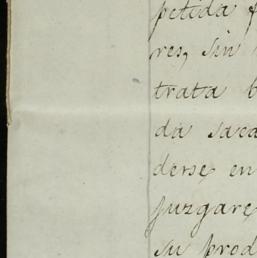 petida
res, sin
trata
da saca
derse en
juzgare
su prod